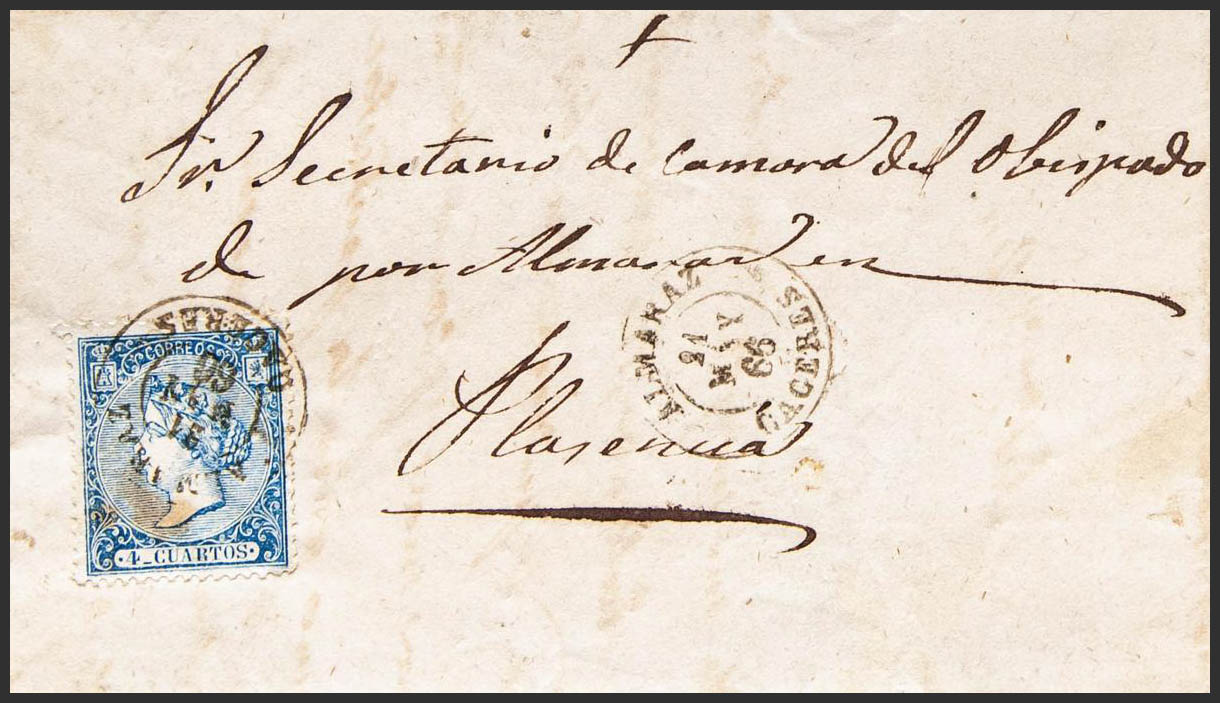 Sr. Secretario de Camara del Obispado
de por Almaraz en
Plasencia
ALMARAZ CACERES
21
MAY
66
CORREOS
4_CUARTOS
CACERES